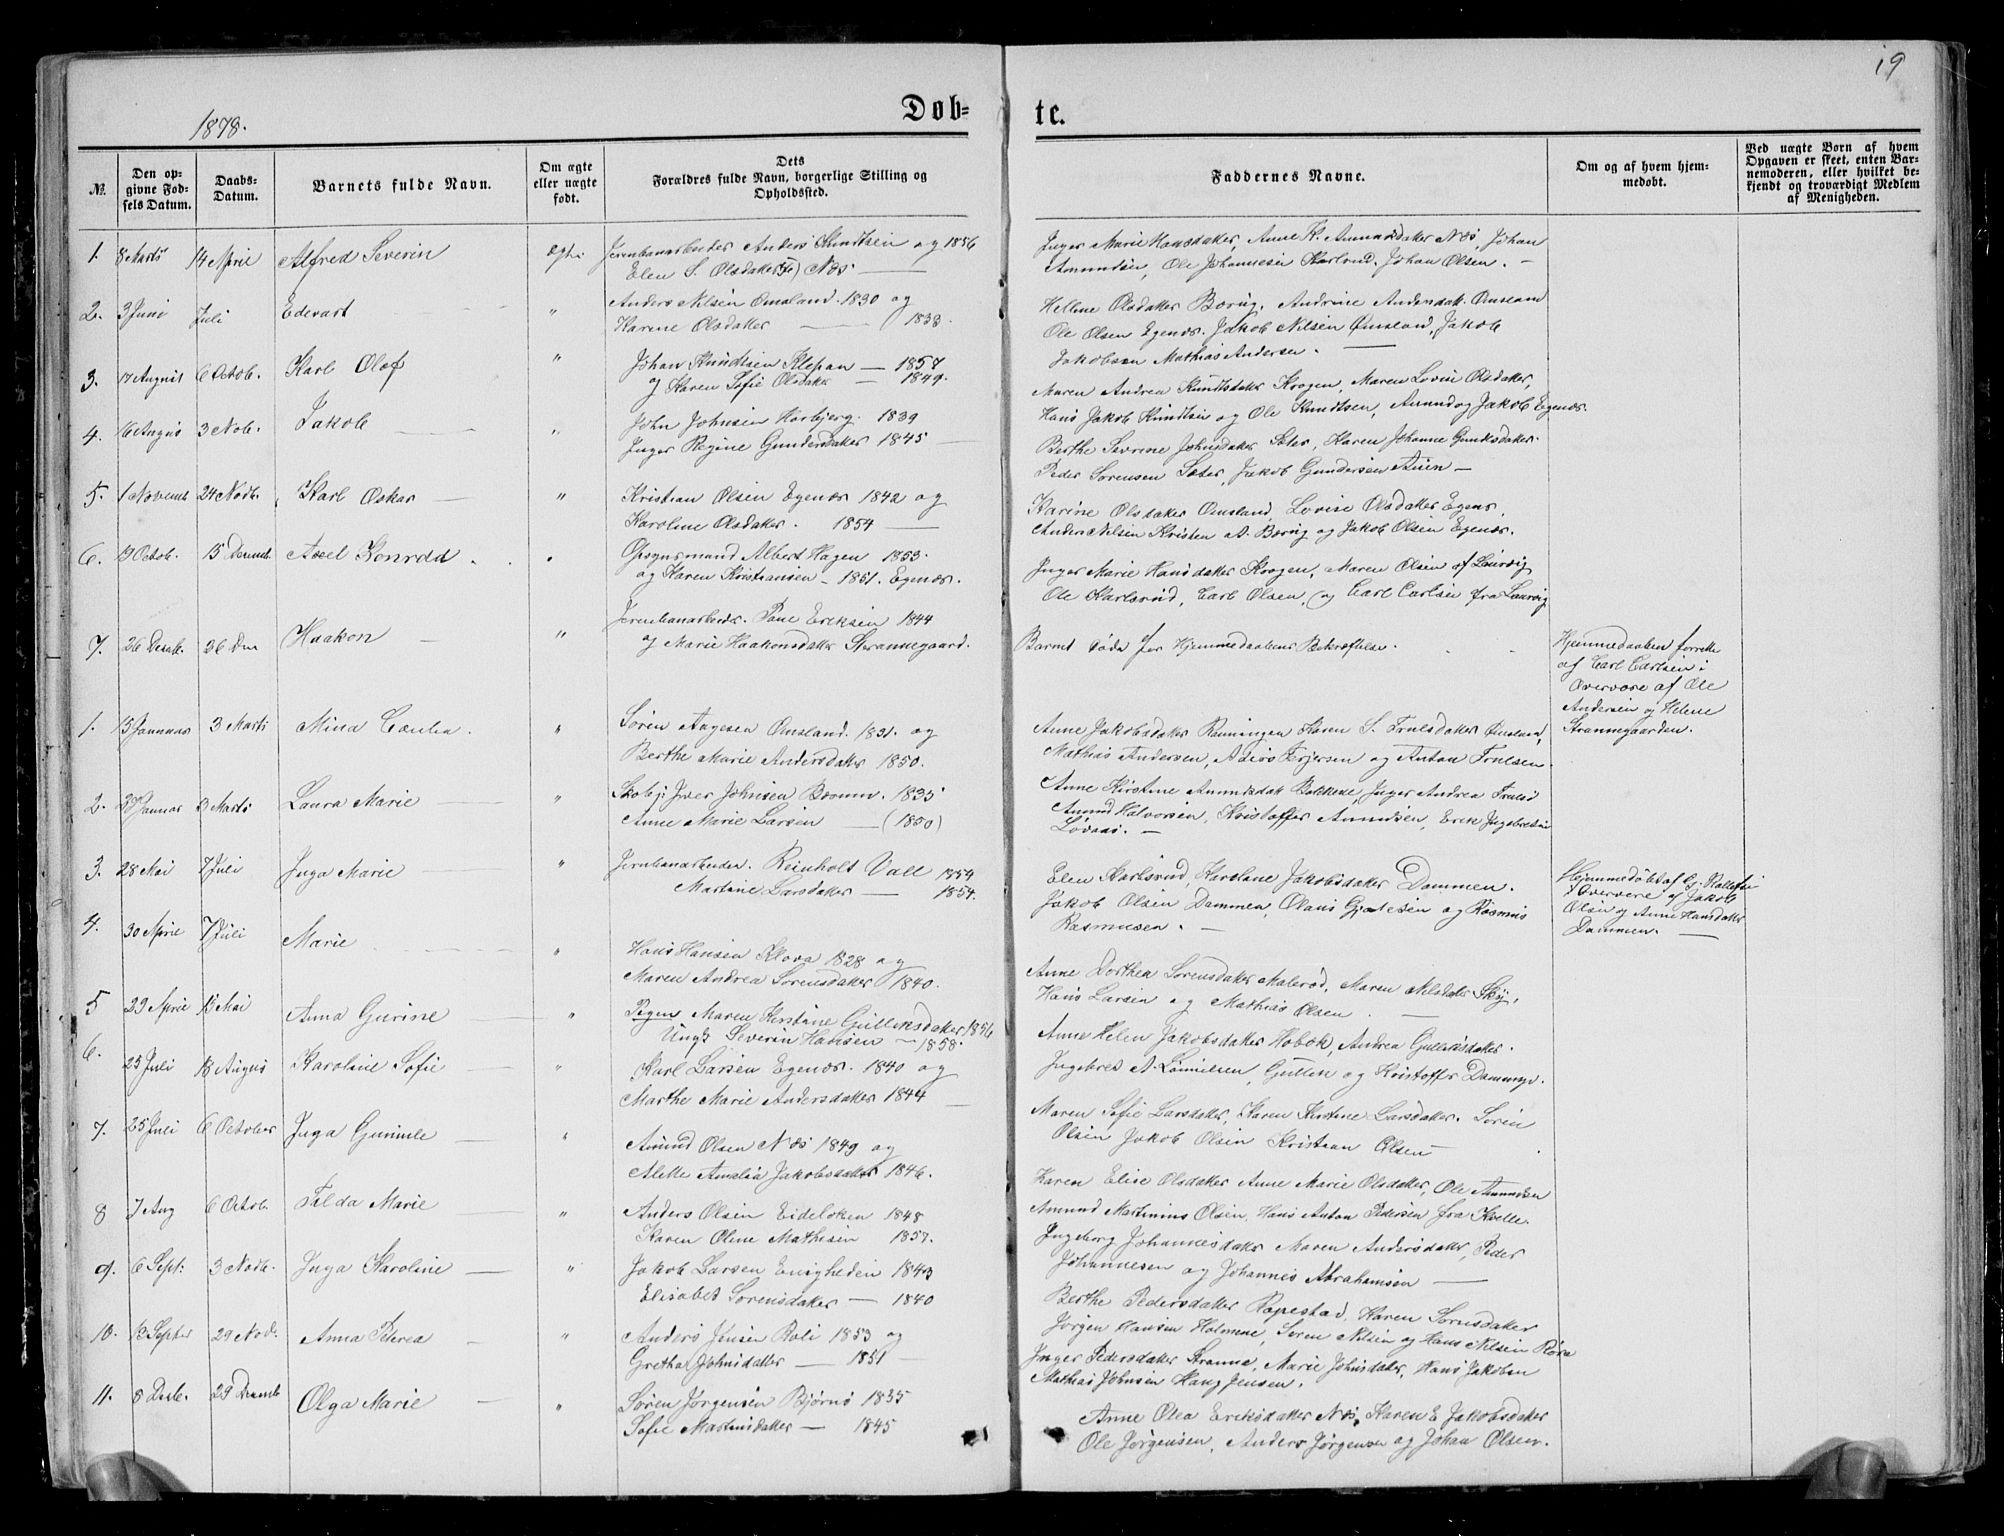 19
1878.
Døb-
te.
№.
Den op-
givne Fød-
sels Datum.
Daabs-
Datum.
Barnets fulde Navn.
Om ægte
eller uægte
født.
Dets
Forældres fulde Navn, borgerlige Stilling og
Opholdssted.
Faddernes Navne.
Om og af hvem hjem-
medøbt.
Ved uægte Børn af hvem
Opgaven er skeet, enten Bar-
nemoderen, eller hvilket be-
kjendt og troværdigt Medlem
af Menigheden.
1. 8 Marts 14 April Alfred Severin Jernbanarbeider Anders Knudtsen og 1856
Elen S. Olsdatter Næs.
Inger Marie Hansdatter, Anne K. Amundsdatter Næs, Johan
Amundsen, Ole Johannesen Karlsrud. Johan Olsen. —
2. 3 Juni Juli Edevart " Anders Nilsen Omsland. 1830 og
Karine Olsdatter — 1833.
Hellene Olsdatter Børug, Andrine Andersdatt. Omsland
Ole Olsen Egenæs. Jakob Nilsen Omsland, Jakob
Jakobsen Mathias Andersen. —
3. 17 August 6 Octob. Karl Olaf " Johan Knudtsen Klepan — 1857
og Karen Sofie Olsdatter — 1849.
Maren Andrea Knudtsdatter Krogen, Maren Lovise Olsdatter,
Hans Jakob Knudtsen og Ole Knudtsen, Amund og Jakob Egenæs.
4. 16 Augus 3 Nob. Jakob " John Johnsen Horbjerg. 1839
Inger Regine Gundersdatter 1845 —
Berthe Severine Johnsdatter Sæter, Karen Johanne Gundersdatter.
Peder Sørensen Sæter, Jakob Gundersen Asien —
5. 1 Novemb 24 Novb. Karl Oskar — " Kristian Olsen Egenæs 1842 og
Karoline Olsdatter. 1854 —
Karine Olsdatter Omsland, Lovise Olsdatter Egenæs,
Anders Nilsen Kristen A. Børug og Jakob Olsen Egenæs.
6. 19 Octob. 15 Decemb Axel Konrdd . Gosgusmand Albert Hagen 1853.
og Karen Kristiansen — 1851. Egenæs.
Inger Marie Hansdatter Krogen, Maren Olsen af Laurvig
Ole Karlsrud, Carl Olsen, og Carl Carlsen fra Laurvig
7. 26 Deseb. 26 Des Haakon — " Jernbanarbeider. Paul Eriksen 1844
og Marie Haakonsdatter Strannegaard.
Barnet døde før Hjemmedaabens Bekræftelse.
Hjemmedaaben forrette
af Carl Carlsen i
Overvære af Ole
Andersen og Helene
Strannegaarden.
1. 15 Januar 3 Marts Mina " Søren Aagesen Omsland. 1831. og
Berthe Marie Andersdatter 1850.
Anne Jakobsdatter Rønningen Karen S. Trulsdatter Omsland,
Mathias Andersen, Terjersen og Anton Trulsen.
2. Januar 3 Marts Laura Marie — " Iver Johnsen Bommen. 1835
Anne Marie Larsen — (1850)
Anne Kirstine Amundsdatt Bakkene, Inger Andrea Trulsd
Amund Halvorsen, Kristoffer Amundsen, Erik Ingebretsen
Løvaas. —
3. 28 Mai 7 Juli Inga Marie — " Jernbanarbeider. Reinholt Vall 1854
Martine Larsdatter — 1854.
Elen Karlsrud, Karoline Jakobsdatter Dammen.
Jakob Olsen Dammen, Olaus og Rasmus
Rasmusen. —
Hjemmedøbt af G. Rollefsen
i Oververe af Jakob
Olsen og Anne Hansdatter
Dammen. —
4. 30 April 7 Juli Marie " Hans Hansen Klova 1828 og
Maren Andrea Sørensdatter 1840.
Anne Dorthea Sørensdatter Malerød, Maren Nilsdatter Sky,
Hans Larsen og Mathias Olsen. —
5 29 April 13 Mai Anna Gurine " Pigen Maren Kirstine Gulliksdatter 1856
Ungk Severin Hansen — 1858.
Anne Helene Jakobsdatter Hobæk, Andrea Gulliksdatter.
Ingebret A. Gullek og Kristoffer Dammen.
6. 25 Juli 13 Augus Karoline Sofie — " Karl Larsen Egenæs. 1840 og
Marthe Marie Andersdatter 1844 —
Maren Sofie Larsdatter, Karen Kirstine Larsdatter. Søren
Olsen Jakob Olsen Kristian Olsen —
7. 25 Juli 6 October Inga Gunnile — " Amund Olsen Næs 1849 og
Alette Amalia Jakobsdatter 1846.
Karen Elise Olsdatter Anne Marie Olsdatter, Ole Amundsen
Amund Martinius Olsen, Hans Anton Pedersen fra Kvelle.
8 7 Aug 6 Octob. Tilda Marie — " Anders Olsen Eideloken 1848
Karen Oline Mathisen 1857.
Ingeborg Johannesdatter Maren Andersdatter, Peder
Johannesen og Johannes Abrahamsen —
9. 6 Sept: 3 Novb. Inga Karoline — " Jakob Larsen Enigheden 1843
Elisabet Sørensdatter — 1840
Berthe Pedersdatter Ropestad, Karen Sørnsdatter
Jørgen Hansen Holmene, Søren Nilsen og Hans Nilsen Røra
10. 13 Septer 29 Nov. Anna Petrea — " Anders Jensen Roli 1853 og
Gretha Johnsdatter — 1851 —
Inger Pedersdatter Stranna, Marie Johnsdatter, Hans Jakobsen
Mathias Johnsen Haug Jensen.
11. 8 Desb. 29 Decemb Olga Marie — " Søren Jørgensen Bjørnø 1835
Sofie Martinsdatter — 1845
Anne Olea Eriksdatter Næs, Karen E Jakobsdatter
Ole Jørgensen, Anders Jørgensen og Johan Olsen.